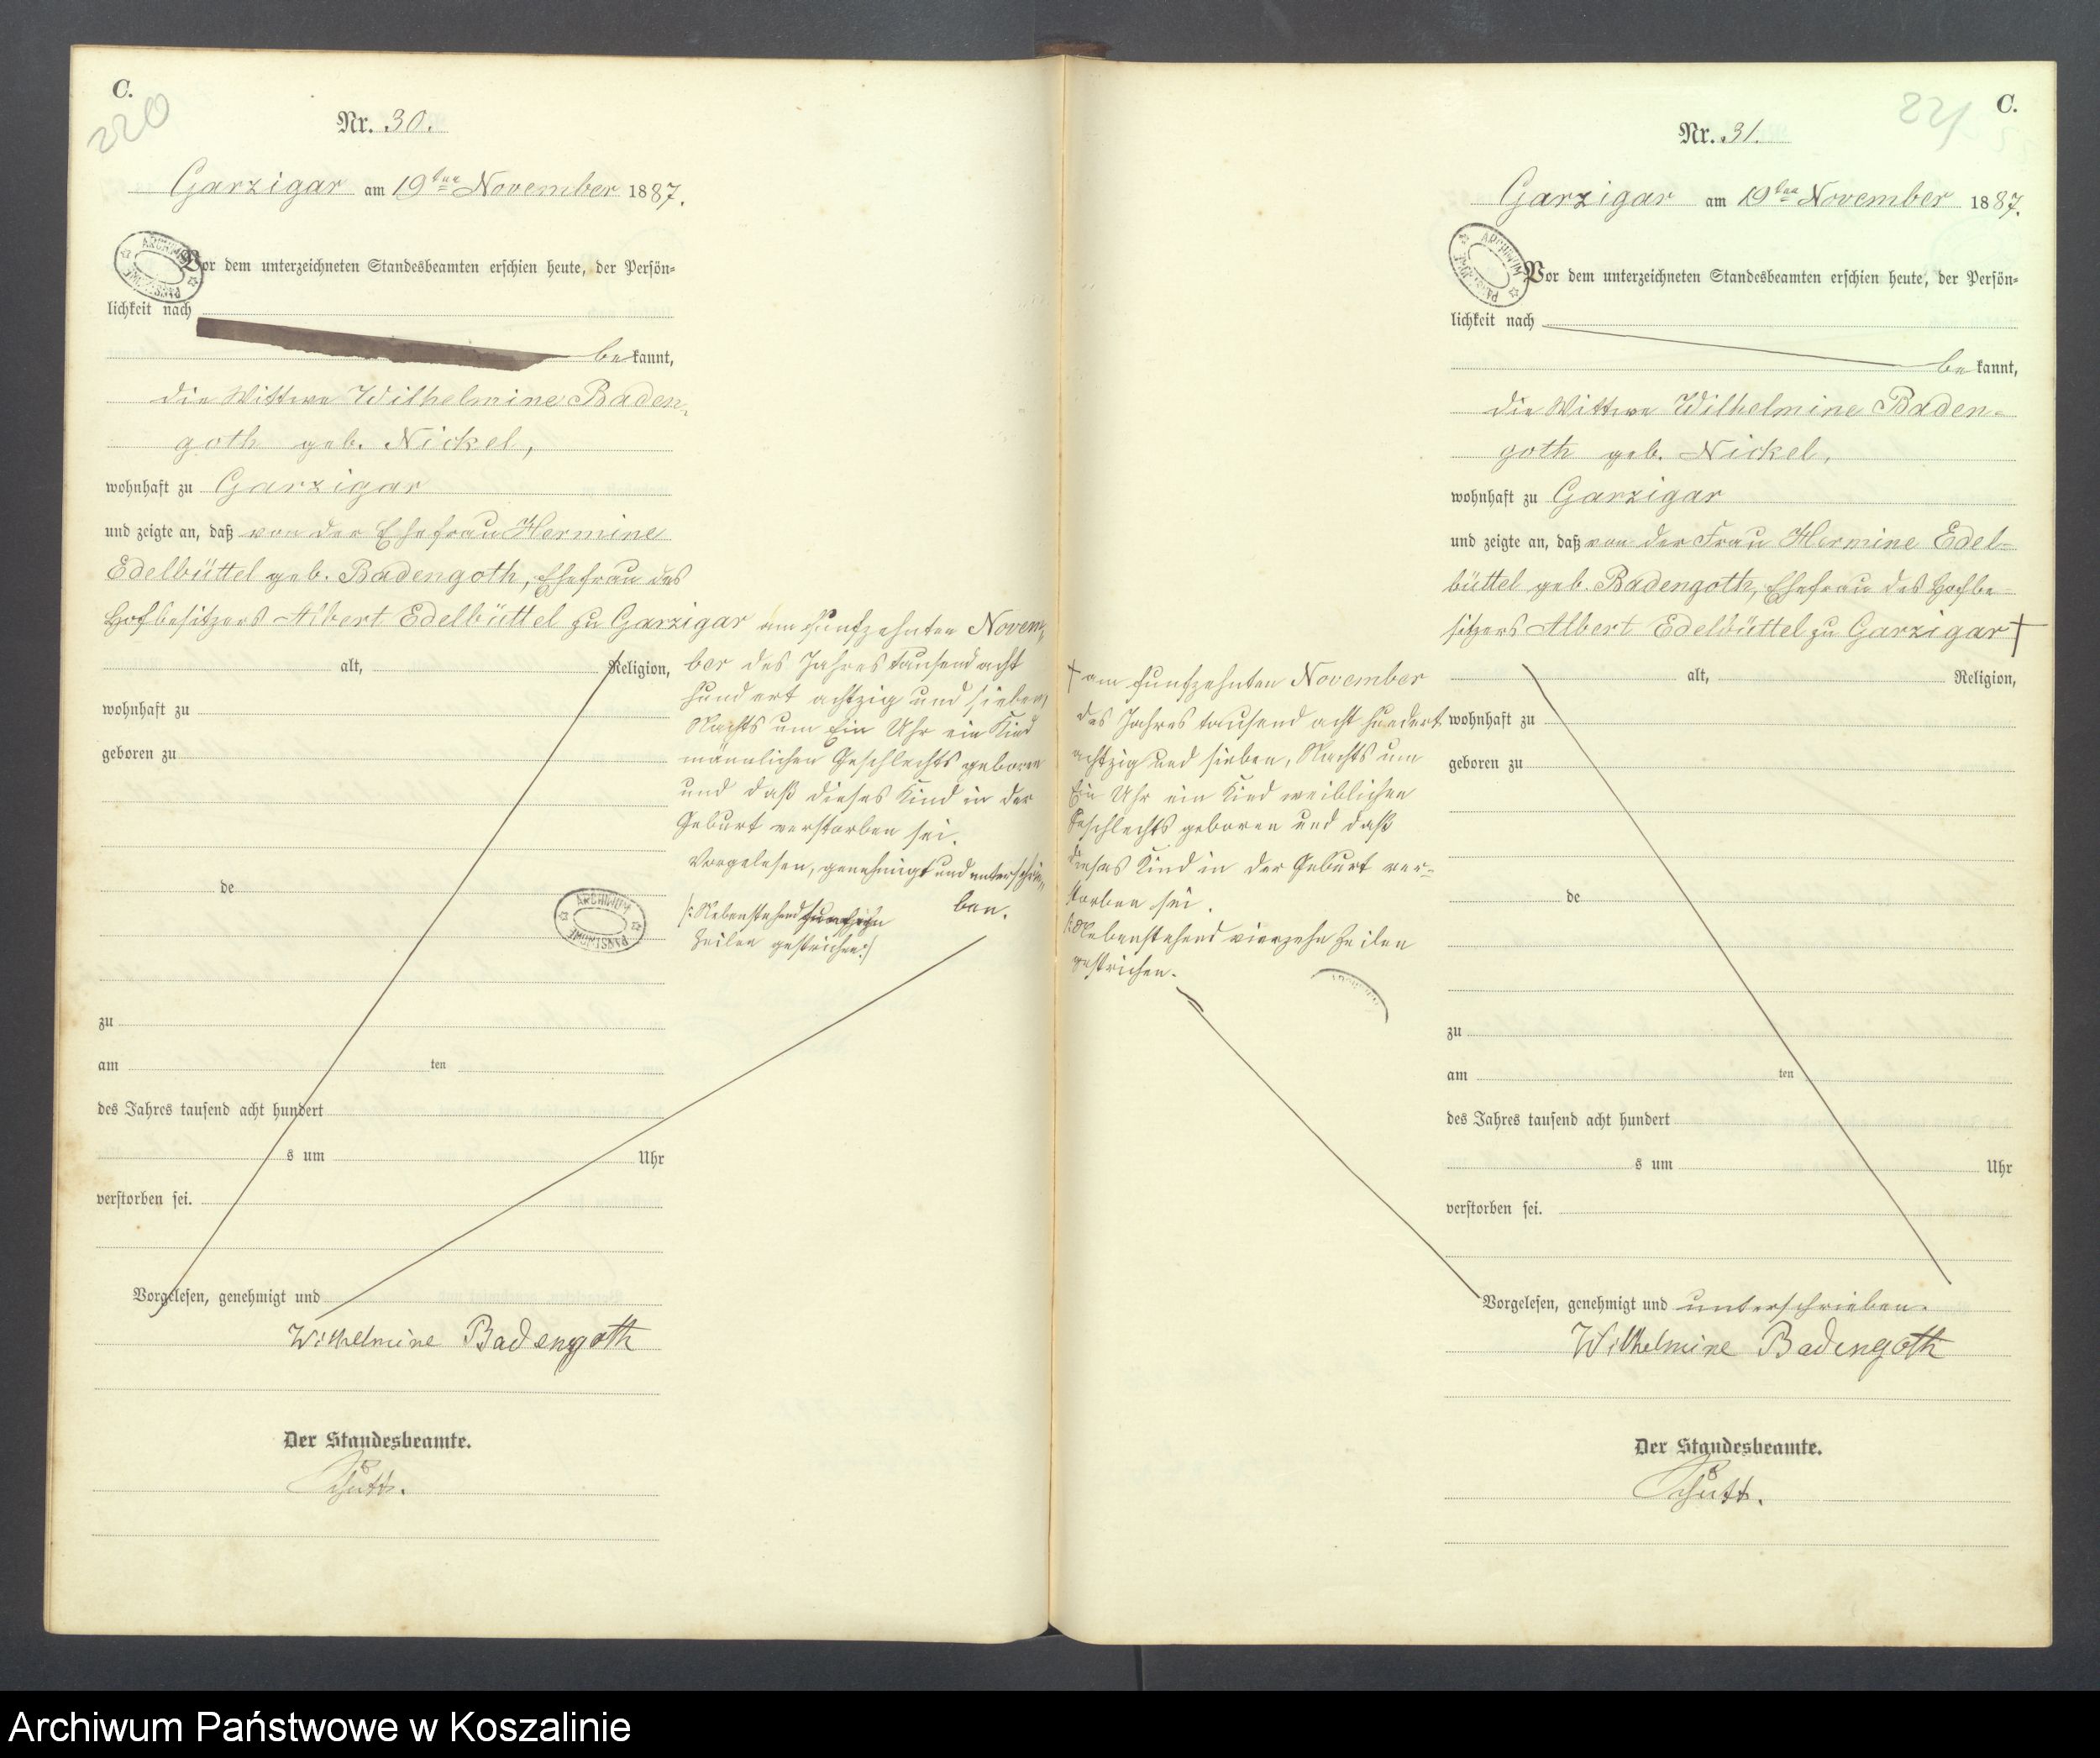 C.
220
Nr. 30.
Garzigar am 19ten November 1887.
Vor dem unterzeichneten Standesbeamten erschien heute, der Persön=
lichkeit nach
bekannt,
die Wittwe Wilhelmine Baden-
goth geb. Nickel,
wohnhaft zu Garzigar
und zeigte an, daß von der Ehefrau Hermine
Edelbüttel geb. Badengoth, Ehefrau des
Hofbesitzers Albert Edelbüttel zu Garzigar am funfzehnten Novem-
ber des Jahres tausend acht
hundert achtzig und sieben,
Nachts um Ein Uhr ein Kind
männlichen Geschlechts geboren
und daß dieses Kind in der
Geburt verstorben sei.
Vorgelesen, genehmigt und unterschrie-
ben.
/: Nebenstehend
Zeilen gestrichen :/
alt, Religion,
wohnhaft zu
geboren zu
de
ARCHIWUM PAŃSTWOWE
zu
am ten
des Jahres tausend acht hundert
s um Uhr
verstorben sei.
Vorgelesen, genehmigt und
Wilhelmine Badengoth
Der Standesbeamte.
Schütt.
C.
221
Nr. 31.
Garzigar am 19ten November 1887.
Vor dem unterzeichneten Standesbeamten erschien heute, der Persön=
lichkeit nach
bekannt,
die Wittwe Wilhelmine Baden=
goth geb. Nickel,
wohnhaft zu Garzigar
und zeigte an, daß von der Frau Hermine Edel=
büttel geb. Badengoth, Ehefrau des Hofbe=
sitzers Albert Edelbüttel zu Garzigar †
† am funfzehnten November
des Jahres tausend acht hundert
achtzig und sieben, Nachts um
Ein Uhr ein Kind weiblichen
Geschlechts geboren und daß
dieses Kind in der Geburt ver=
storben sei.
/: Nebenstehend vierzehn Zeilen
gestrichen.
alt, Religion,
wohnhaft zu
geboren zu
de
zu
am ten
des Jahres tausend acht hundert
s um Uhr
verstorben sei.
Vorgelesen, genehmigt und unterschrieben.
Wilhelmine Badengoth
Der Standesbeamte.
Schütt.
Archiwum Państwowe w Koszalinie